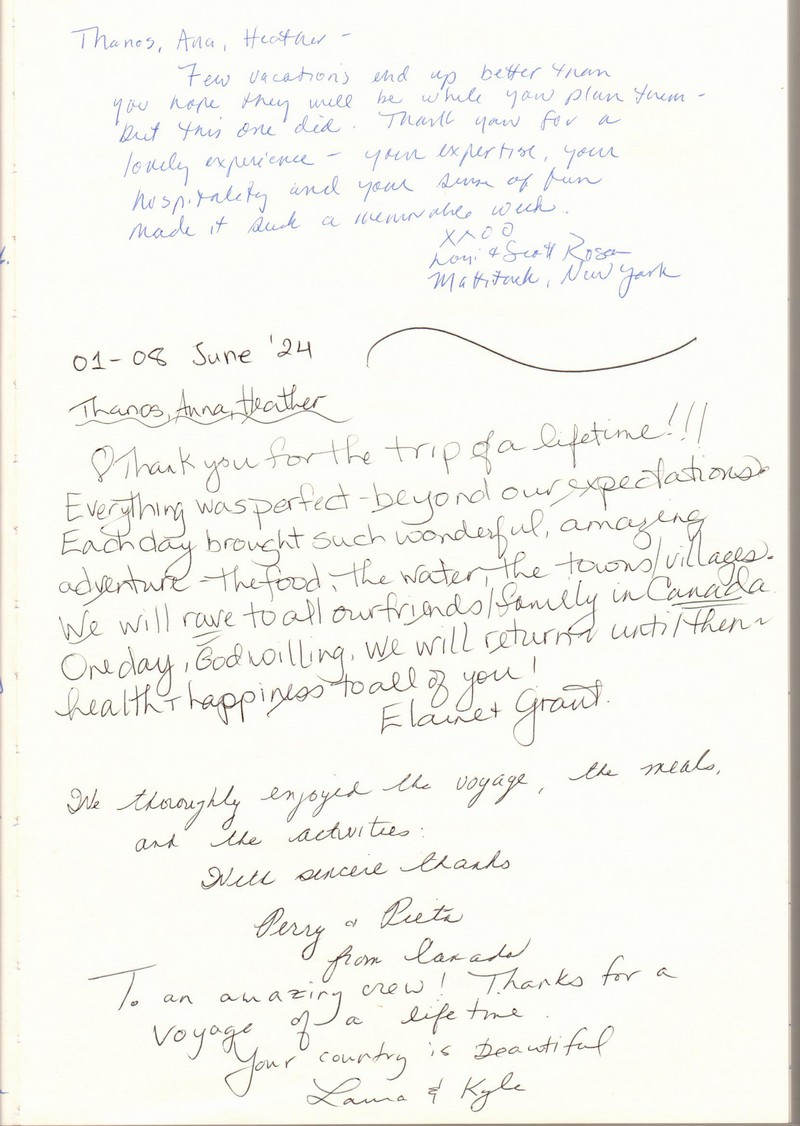 Thanos, Ana, Heather -
Few vacations end up better than
you hope they will be while you plan them -
but this one did. Thank you for a
lovely experience - your expertise, your
hospitality and your sense of fun
made it such a memorable week.
XXOO
Lori & Scott Rosen
Mattituck, New York
01-08 June '24
Thanos, Anna, Heather
♡ Thank you for the trip of a lifetime!!!
Everything was perfect - beyond our expectations.
Each day brought such wonderful, amazing
adventure - the food, the water, the towns/villages.
We will rave to all our friends/family in Canada
One day, God willing, we will return until then ~
health + happiness to all of you!
Elaine + Grant.
We thoroughly enjoyed the voyage, the meals,
and the activities.
With sincere thanks
Perry & Pieta
from Canada
To an amazing crew! Thanks for a
voyage of a life time.
Your country is beautiful
Laura & Kyle